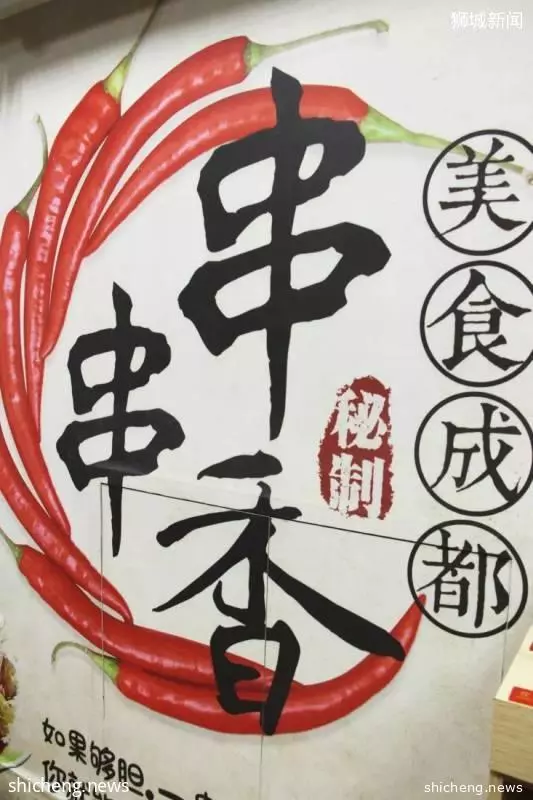 狮城新闻
串
串
香
秘制
美食成都
如果够胆
shicheng.news
shicheng.news